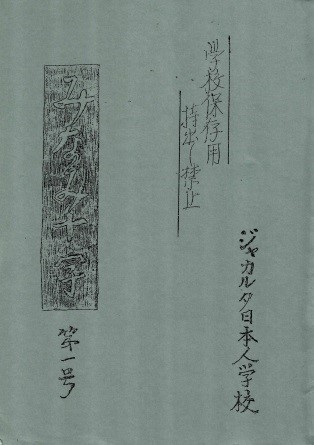 学校保存用
持出し禁止
ジャカルタ日本人学校
みなみ十字
第一号